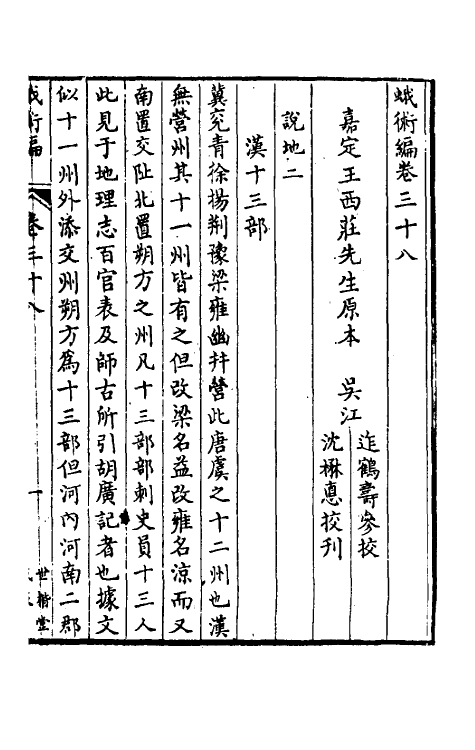 蛾術編卷三十八
嘉定王西莊先生原本　吳江
迮鶴壽參挍
沈楙悳挍刊
說地二
漢十三部
冀兖青徐揚荆豫梁雍幽幷營此唐虞之十二州也漢
無營州其十一州皆有之但改梁名益改雍名涼而又
南置交阯北置朔方之州凡十三部部刺史員十三人
此見于地理志百官表及師古所引胡廣記者也據文
似十一州外添交州朔方爲十三部但河內河南二郡
蛾術編
卷三十八
一
世楷堂